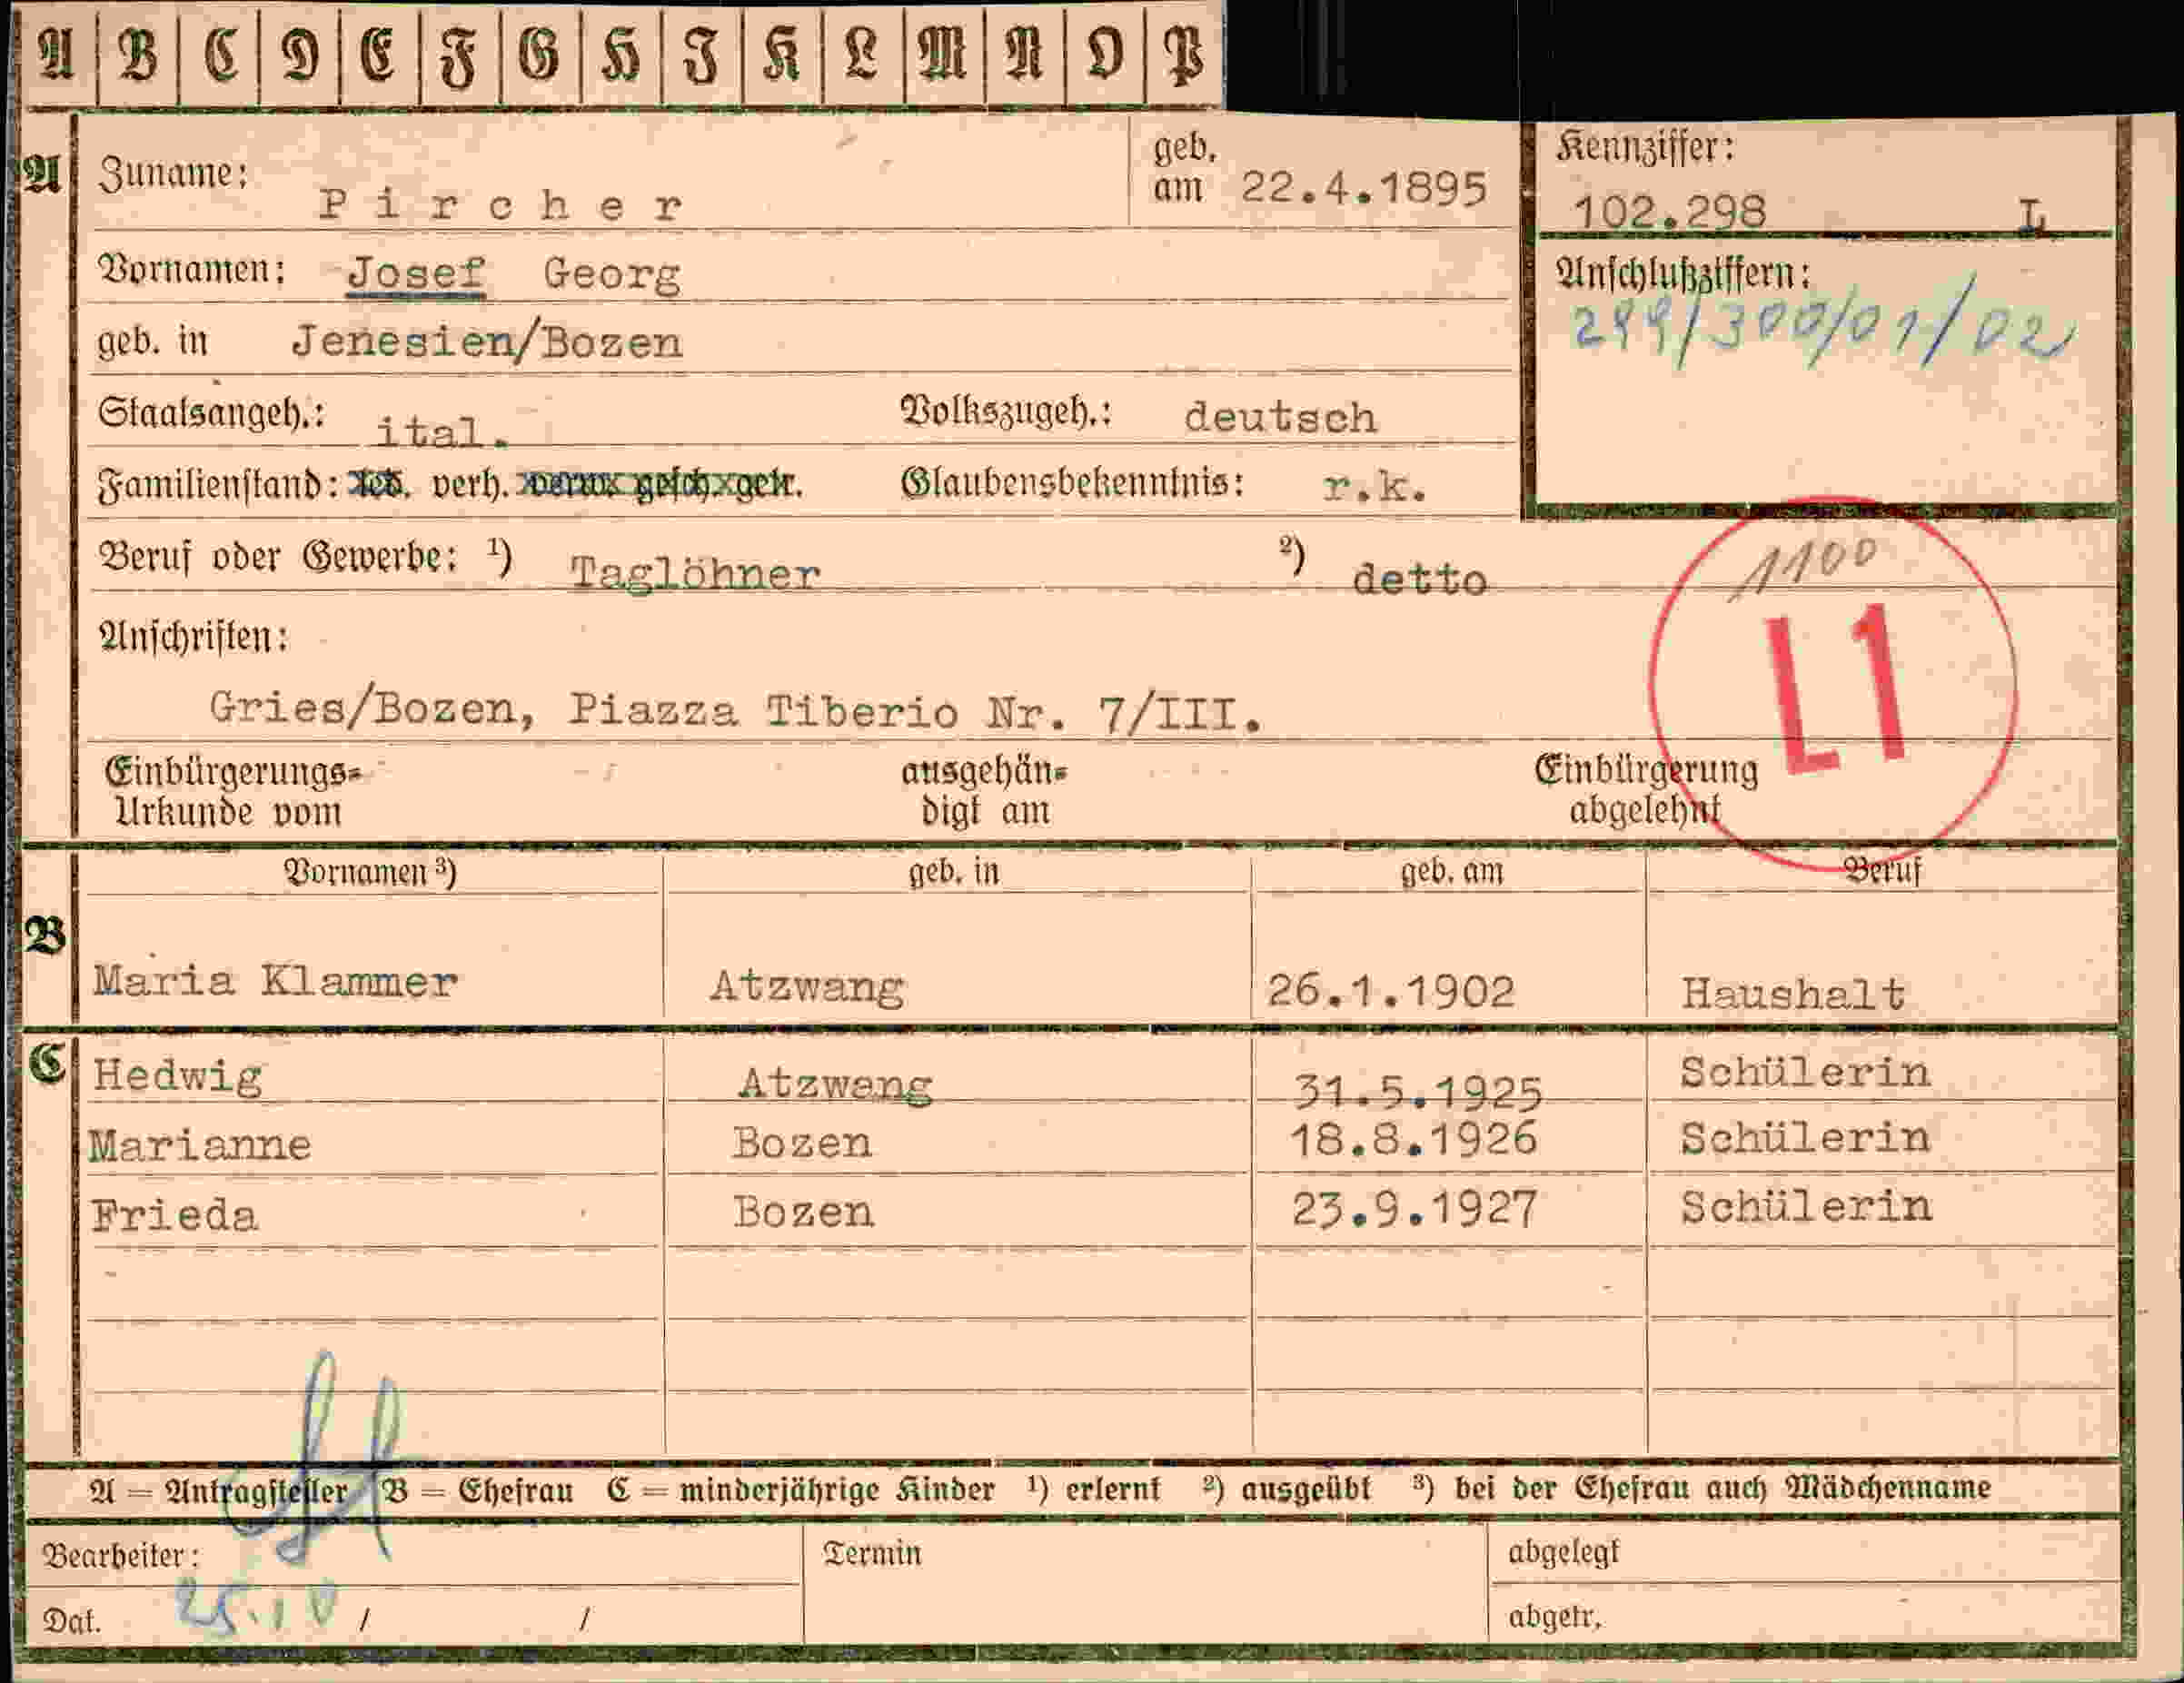 A B C D E F G H I K L M N O P
A Zuname: Pircher geb. am 22.4.1895
Kennziffer: 102.298 L
Vornamen: Josef Georg
Anschlußziffern: 299/300/01/02
geb. in Jenesien/Bozen
Staatsangeh.: ital. Volkszugeh.: deutsch
Familienstand: led. verh. verw. gesch. getr. Glaubensbekenntnis: r.k.
Beruf oder Gewerbe: ¹) Taglöhner ²) detto
1100
L1
Anschriften:
Gries/Bozen, Piazza Tiberio Nr. 7/III.
Einbürgerungs= ausgehän= Einbürgerung
Urkunde vom digt am abgelehnt
Vornamen ³) geb. in geb. am Beruf
B
Maria Klammer Atzwang 26.1.1902 Haushalt
C Hedwig Atzwang 31.5.1925 Schülerin
Marianne Bozen 18.8.1926 Schülerin
Frieda Bozen 23.9.1927 Schülerin
A = Antragsteller B = Ehefrau C = minderjährige Kinder ¹) erlernt ²) ausgeübt ³) bei der Ehefrau auch Mädchenname
Bearbeiter: Termin abgelegt
Dat. 25.10 / / abgetr.